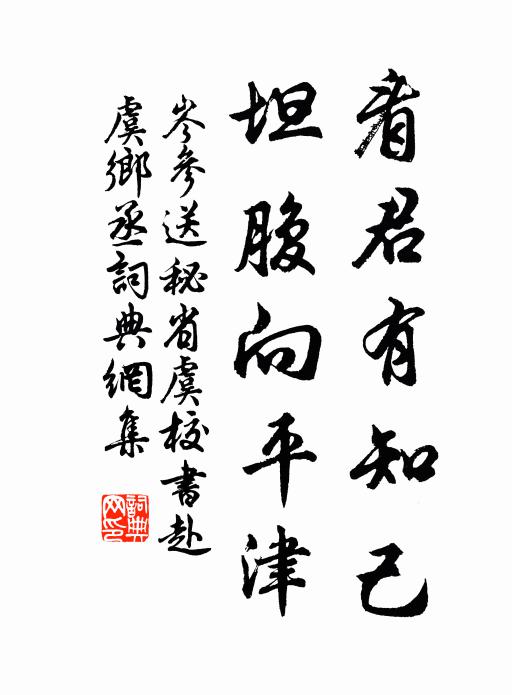 看君有知己
坦腹向平津
岑參送秘省虞校書赴
虞鄉丞詞典網集
詞典網印